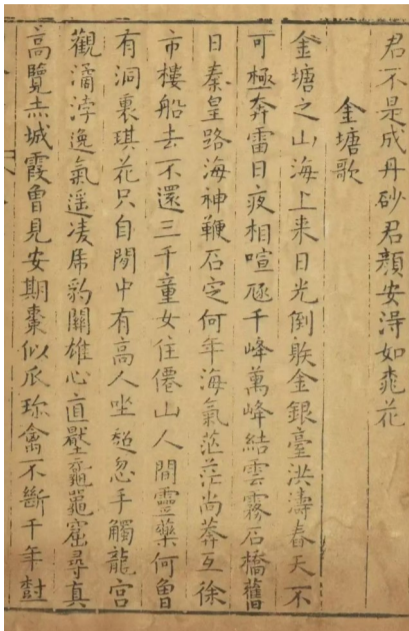 君不是成丹砂君顏安淂如桃花
金塘歌
金塘之山海上来日光倒射金銀臺洪濤舂天不
可極奔雷日夜相喧豗千峰萬峰結雲霧石橋舊
日秦皇路海神鞭石定何年海氣茫茫尚莽互徐
市樓船去不還三千童女住僊山人間靈藥何曾
有洞裏琪花只自閒中有高人坐超忽手觸龍宮
觀潏浡逸氣遥凌虎豹關雄心直壓黿鼉窟尋真
高覽赤城霞曾見安期棗似瓜珍禽不斷千年樹